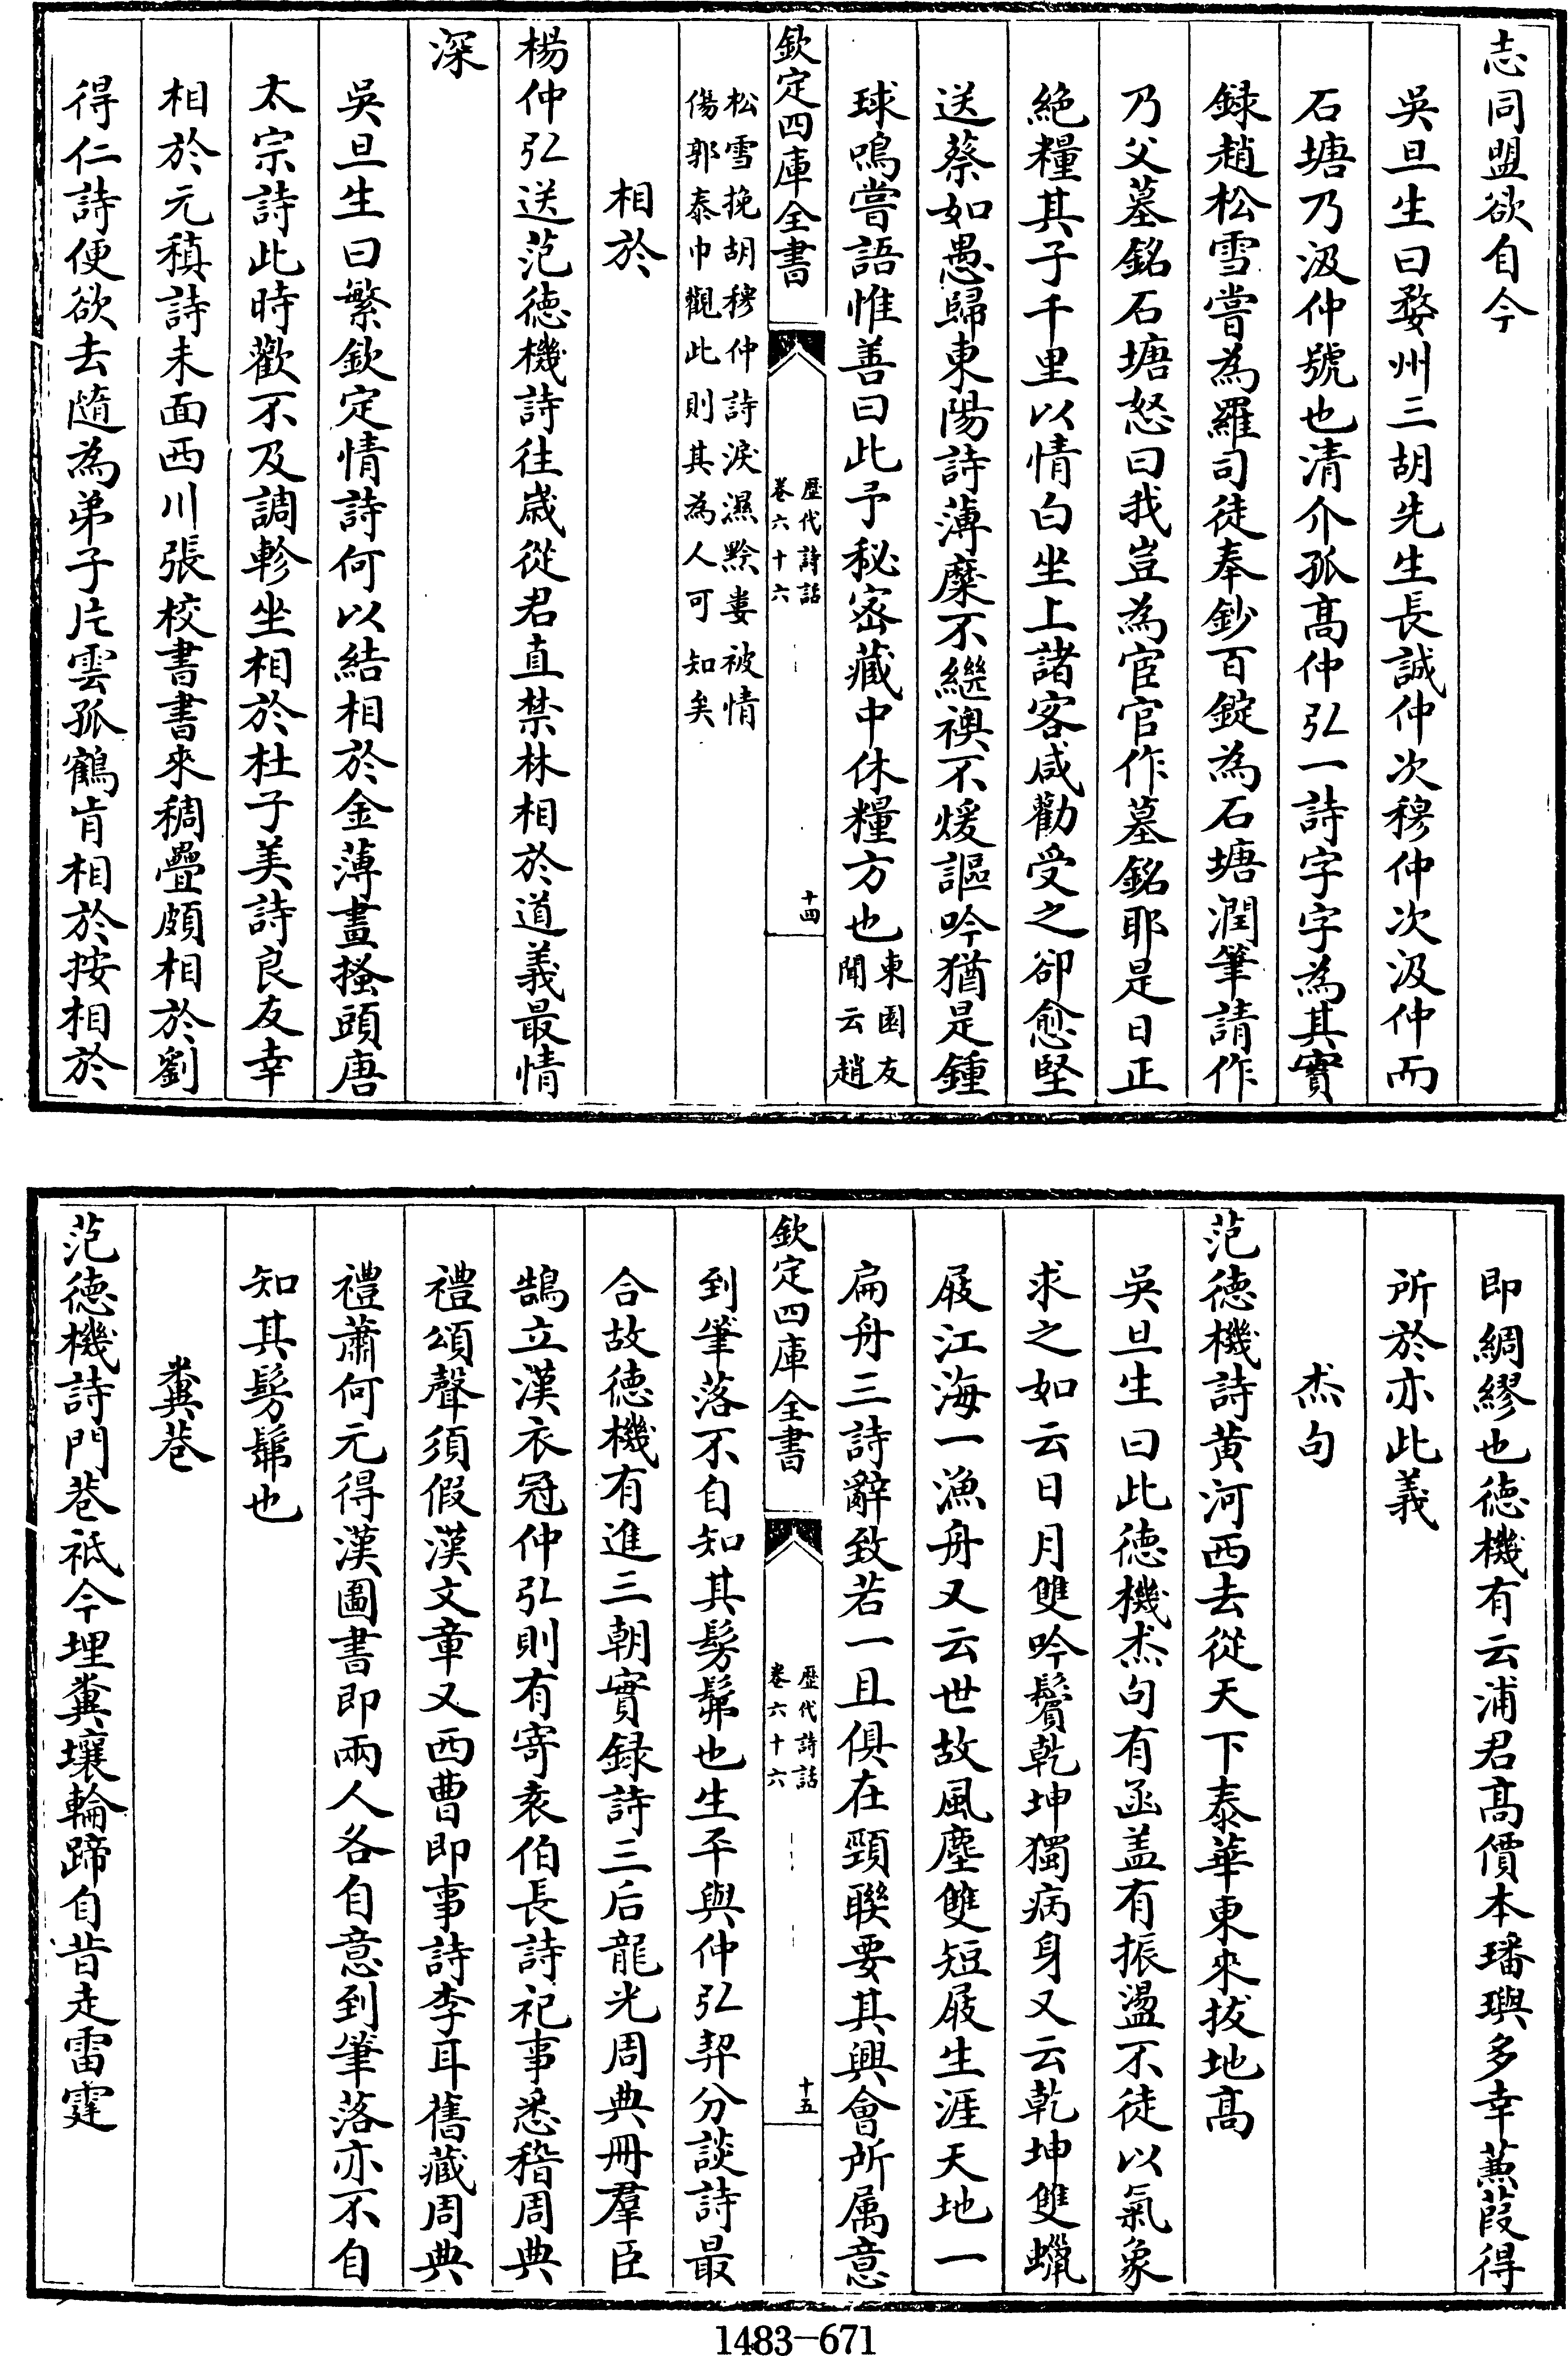 志同盟欲自今
吳旦生曰婺州三胡先生長誠仲次穆仲次汲仲而
石塘乃汲仲號也清介孤髙仲弘一詩字字為其實
録趙松雪嘗為羅司徒奉鈔百錠為石塘潤筆請作
乃父墓銘石塘怒曰我豈為宦官作墓銘耶是日正
絶糧其子千里以情白坐上諸客咸勸受之卻愈堅
送蔡如愚歸東陽詩薄糜不繼襖不煖謳吟猶是鍾
球鳴嘗語惟善曰此予秘宻藏中休糧方也東園友
聞云趙
欽定四庫全書
歴代詩話
卷六十六
十四
松雪挽胡穆仲詩淚濕黔婁被情
傷郭泰巾觀此則其為人可知矣
相於
楊仲弘送范徳機詩往嵗從君直禁林相於道義最情
深
吳旦生曰繁欽定情詩何以結相於金薄畫搔頭唐
太宗詩此時歡不及調軫坐相於杜子美詩良友幸
相於元稹詩未面西川張校書書來稠疊頗相於劉
得仁詩便欲去隨為弟子片雲孤鶴肯相於按相於
即綢繆也徳機有云浦君髙價本璠璵多幸蒹葭得
所於亦此義
杰句
范徳機詩黄河西去從天下泰華東來拔地髙
吳旦生曰此徳機杰句有函盖有振盪不徒以氣象
求之如云日月雙吟鬢乾坤獨病身又云乾坤雙蠟
屐江海一漁舟又云世故風塵雙短屐生涯天地一
扁舟三詩辭致若一且俱在頸聯要其興會所属意
欽定四庫全書
歴代詩話
卷六十六
十五
到筆落不自知其髣髴也生平與仲弘契分談詩最
合故徳機有進三朝實録詩三后龍光周典冊羣臣
鵠立漢衣冠仲弘則有寄袁伯長詩祀事悉稽周典
禮頌聲須假漢文章又西曹即事詩李耳舊藏周典
禮蕭何元得漢圖書即兩人各自意到筆落亦不自
知其髣髴也
糞巷
范徳機詩門巷祇今埋糞壤輪蹄自昔走雷霆
1483-671